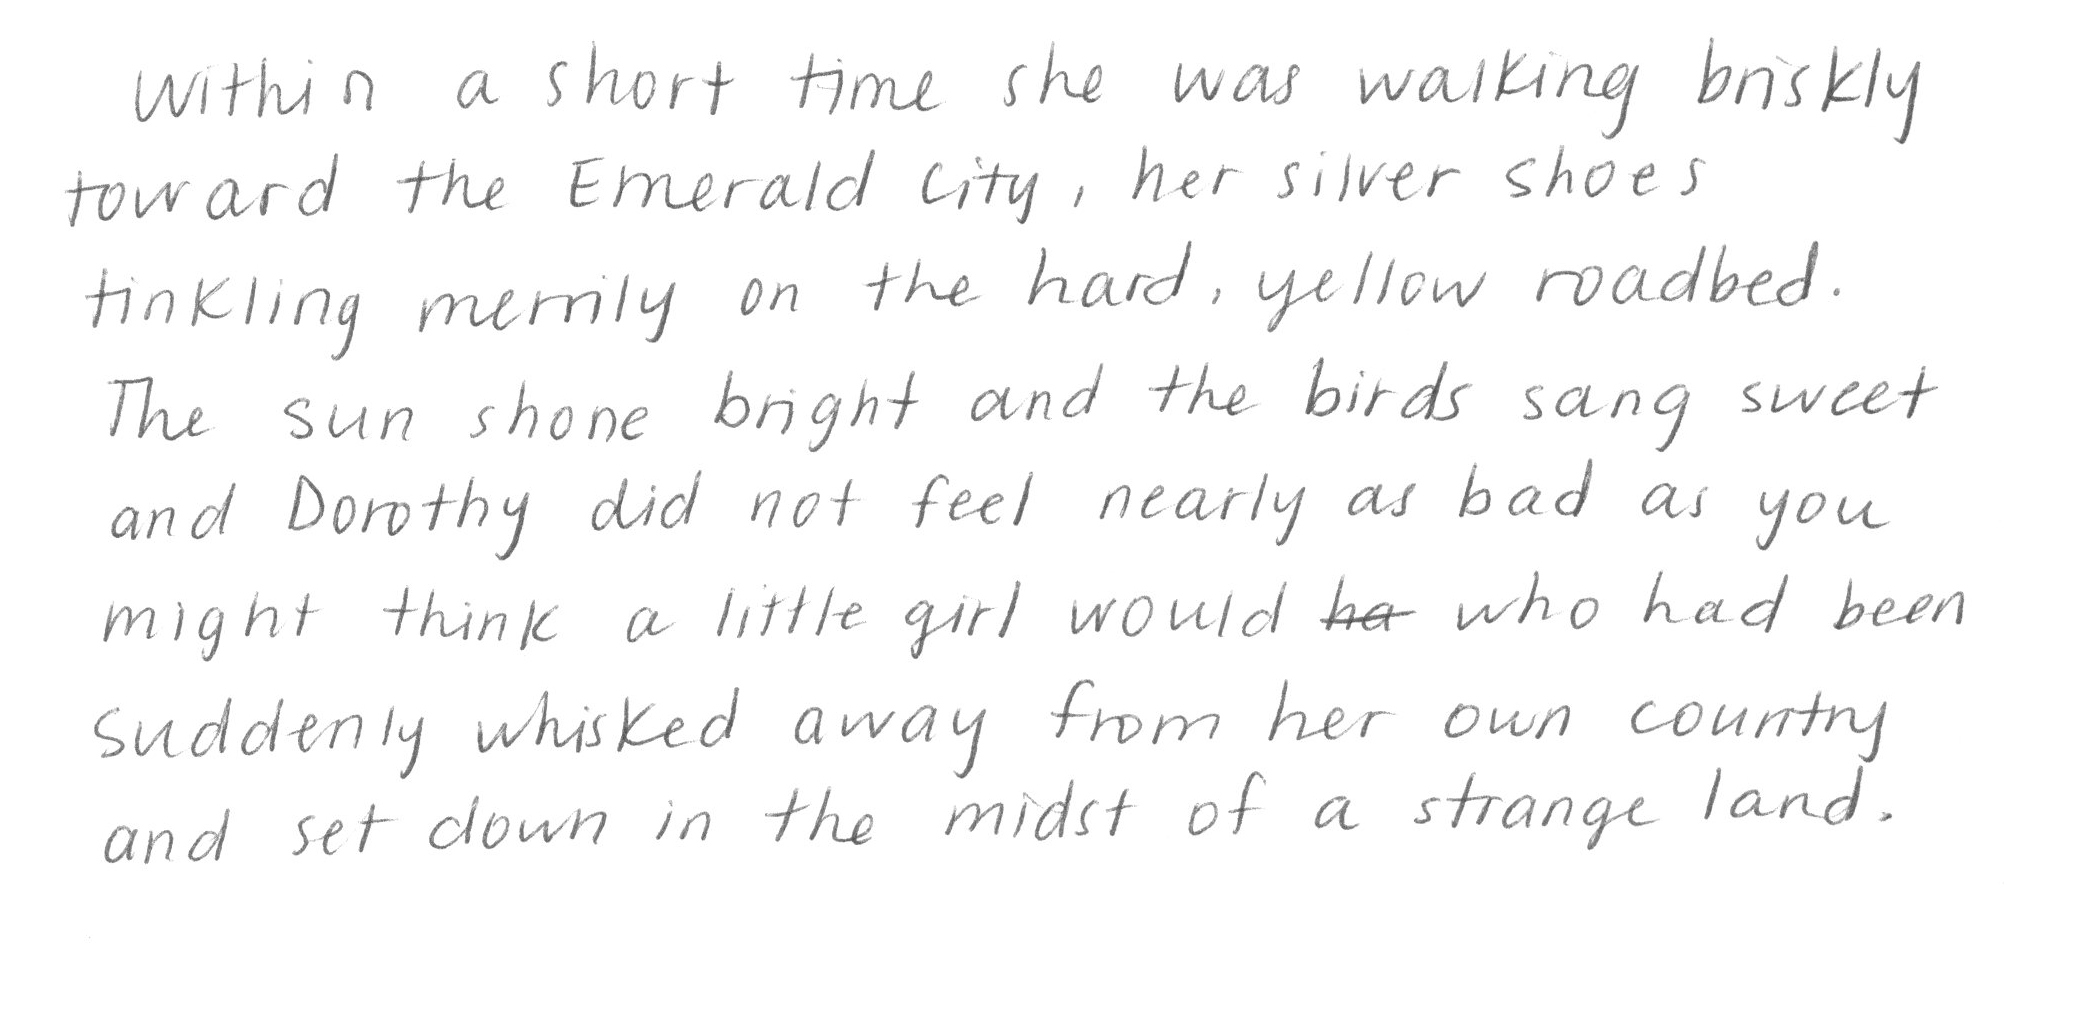 Within a short time she was walking briskly
toward the Emerald City, her silver shoes
tinkling merrily on the hard, yellow roadbed.
The sun shone bright and the birds sang sweet
and Dorothy did not feel nearly as bad as you
might think a little girl would ha who had been
suddenly whisked away from her own country
and set down in the midst of a strange land.